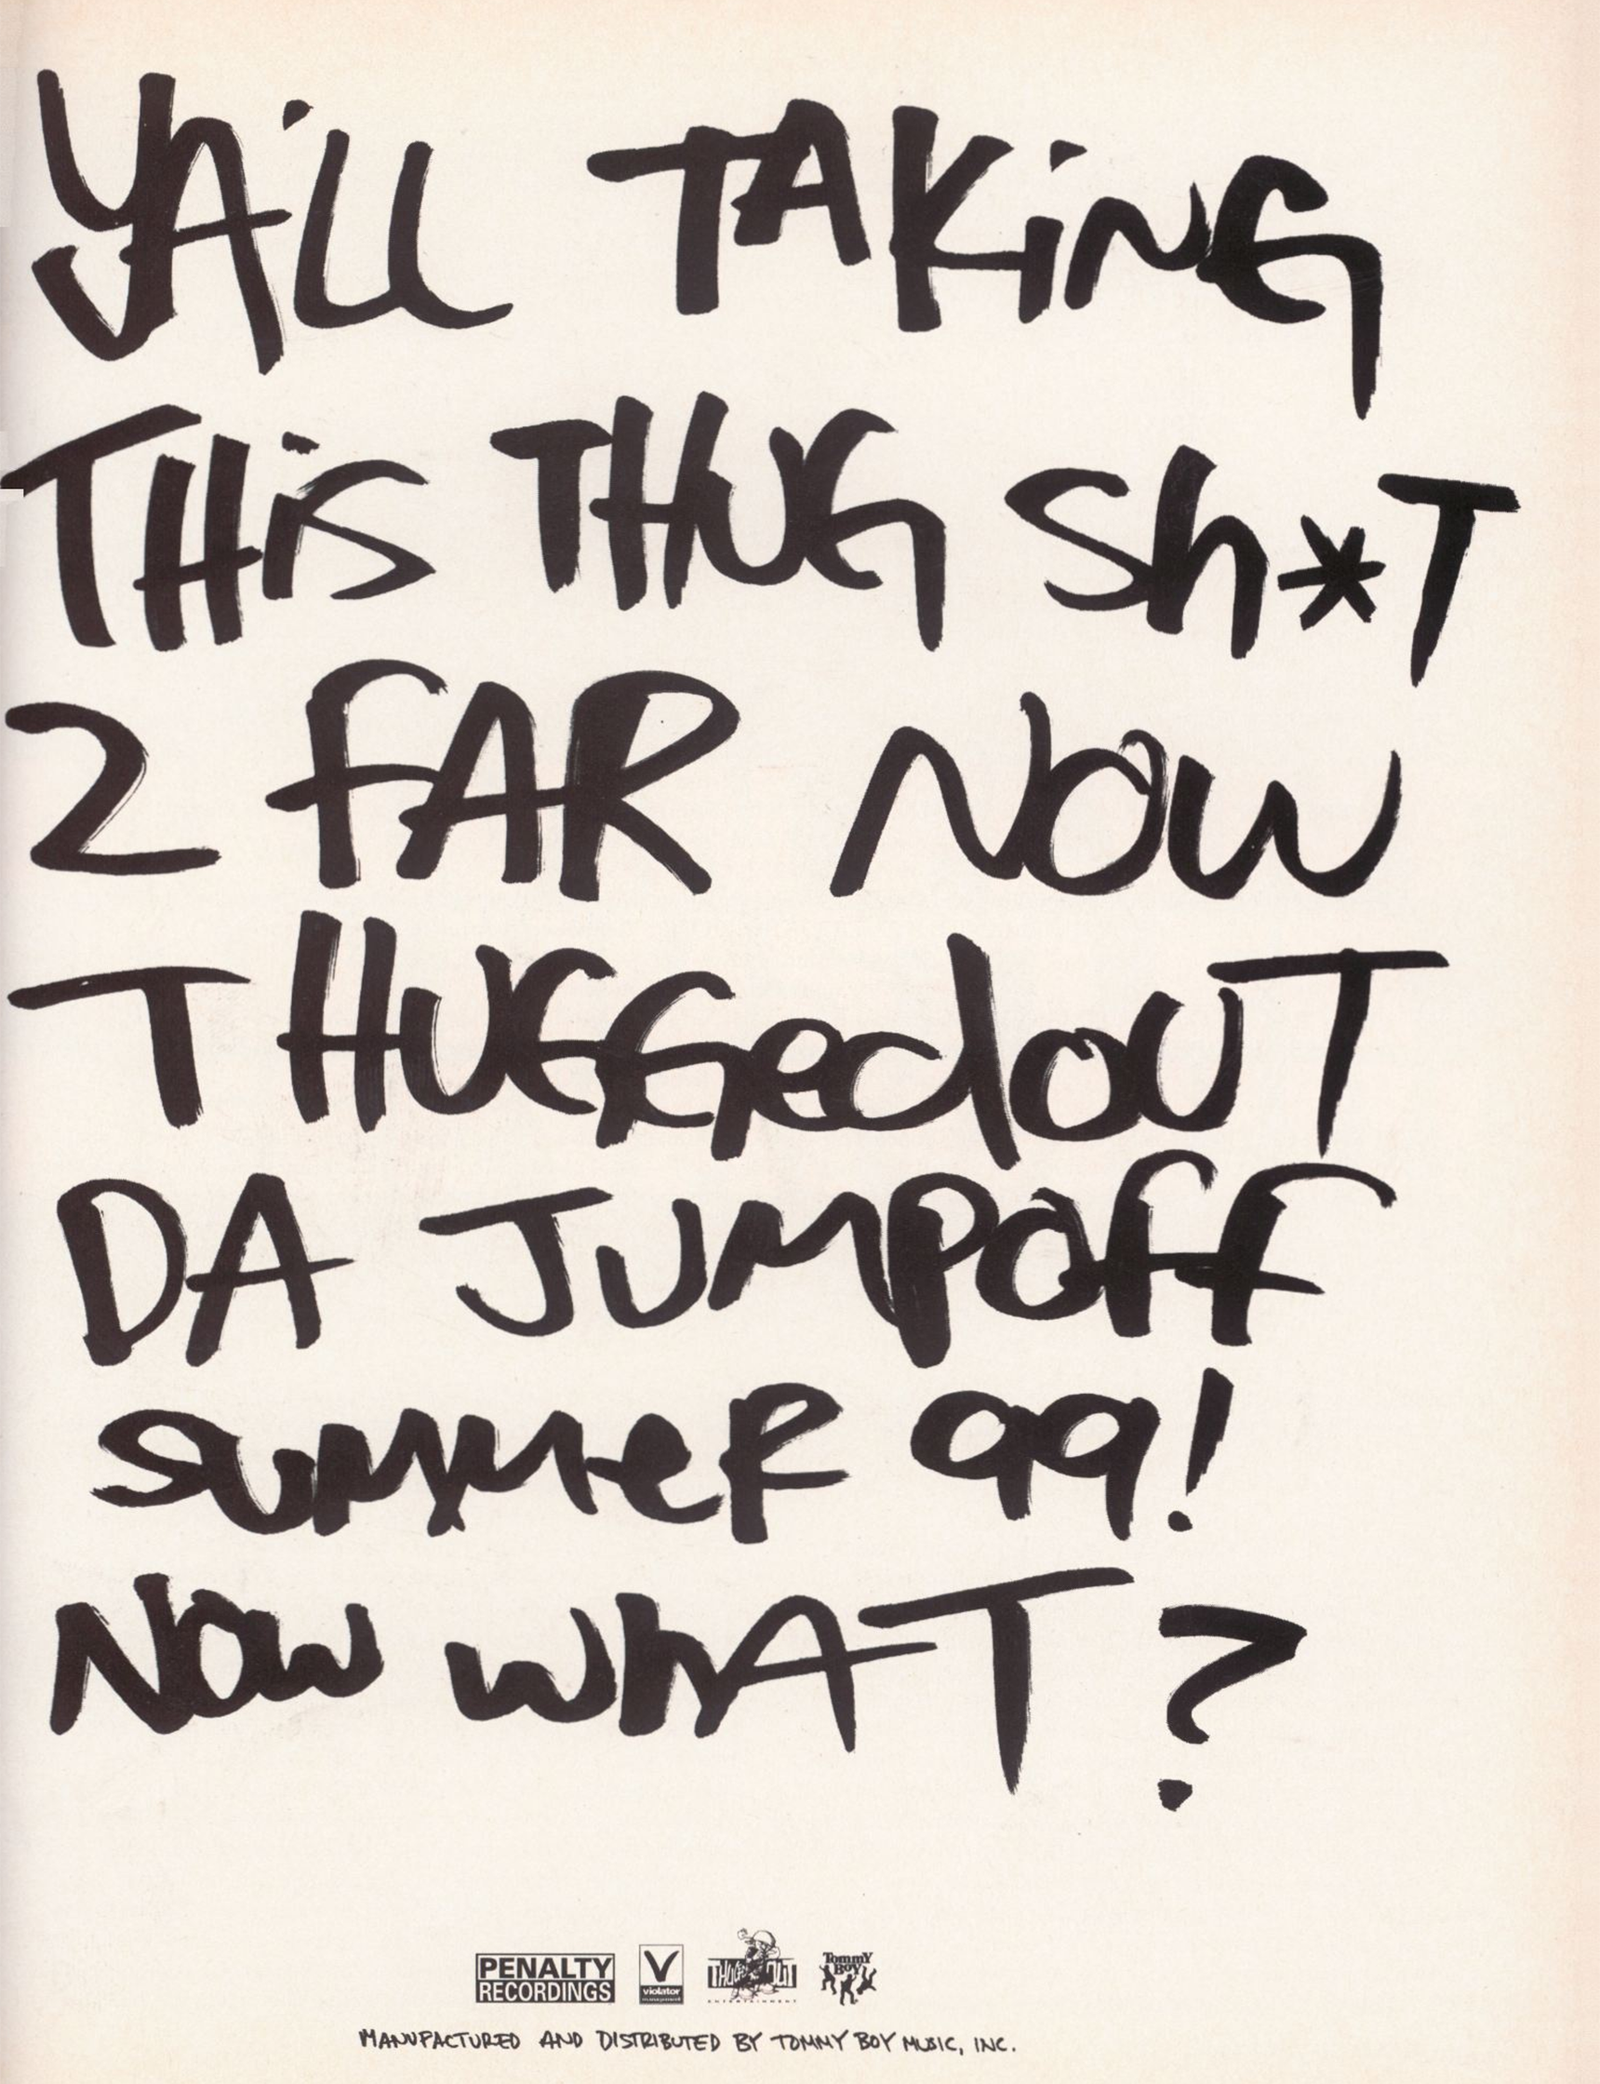 YA'LL TAKiNG
THiS THUG Sh*T
2 FAR NOW
THUGGedOUT
DA JUMPOFF
SUMMER 99!
NOW WhAT?
PENALTY
RECORDINGS
V
violator
management
THUGGED OUT
ENTERTAINMENT
Tommy
Boy
MANUFACTURED AND DISTRIBUTED BY TOMMY BOY MUSIC, INC.